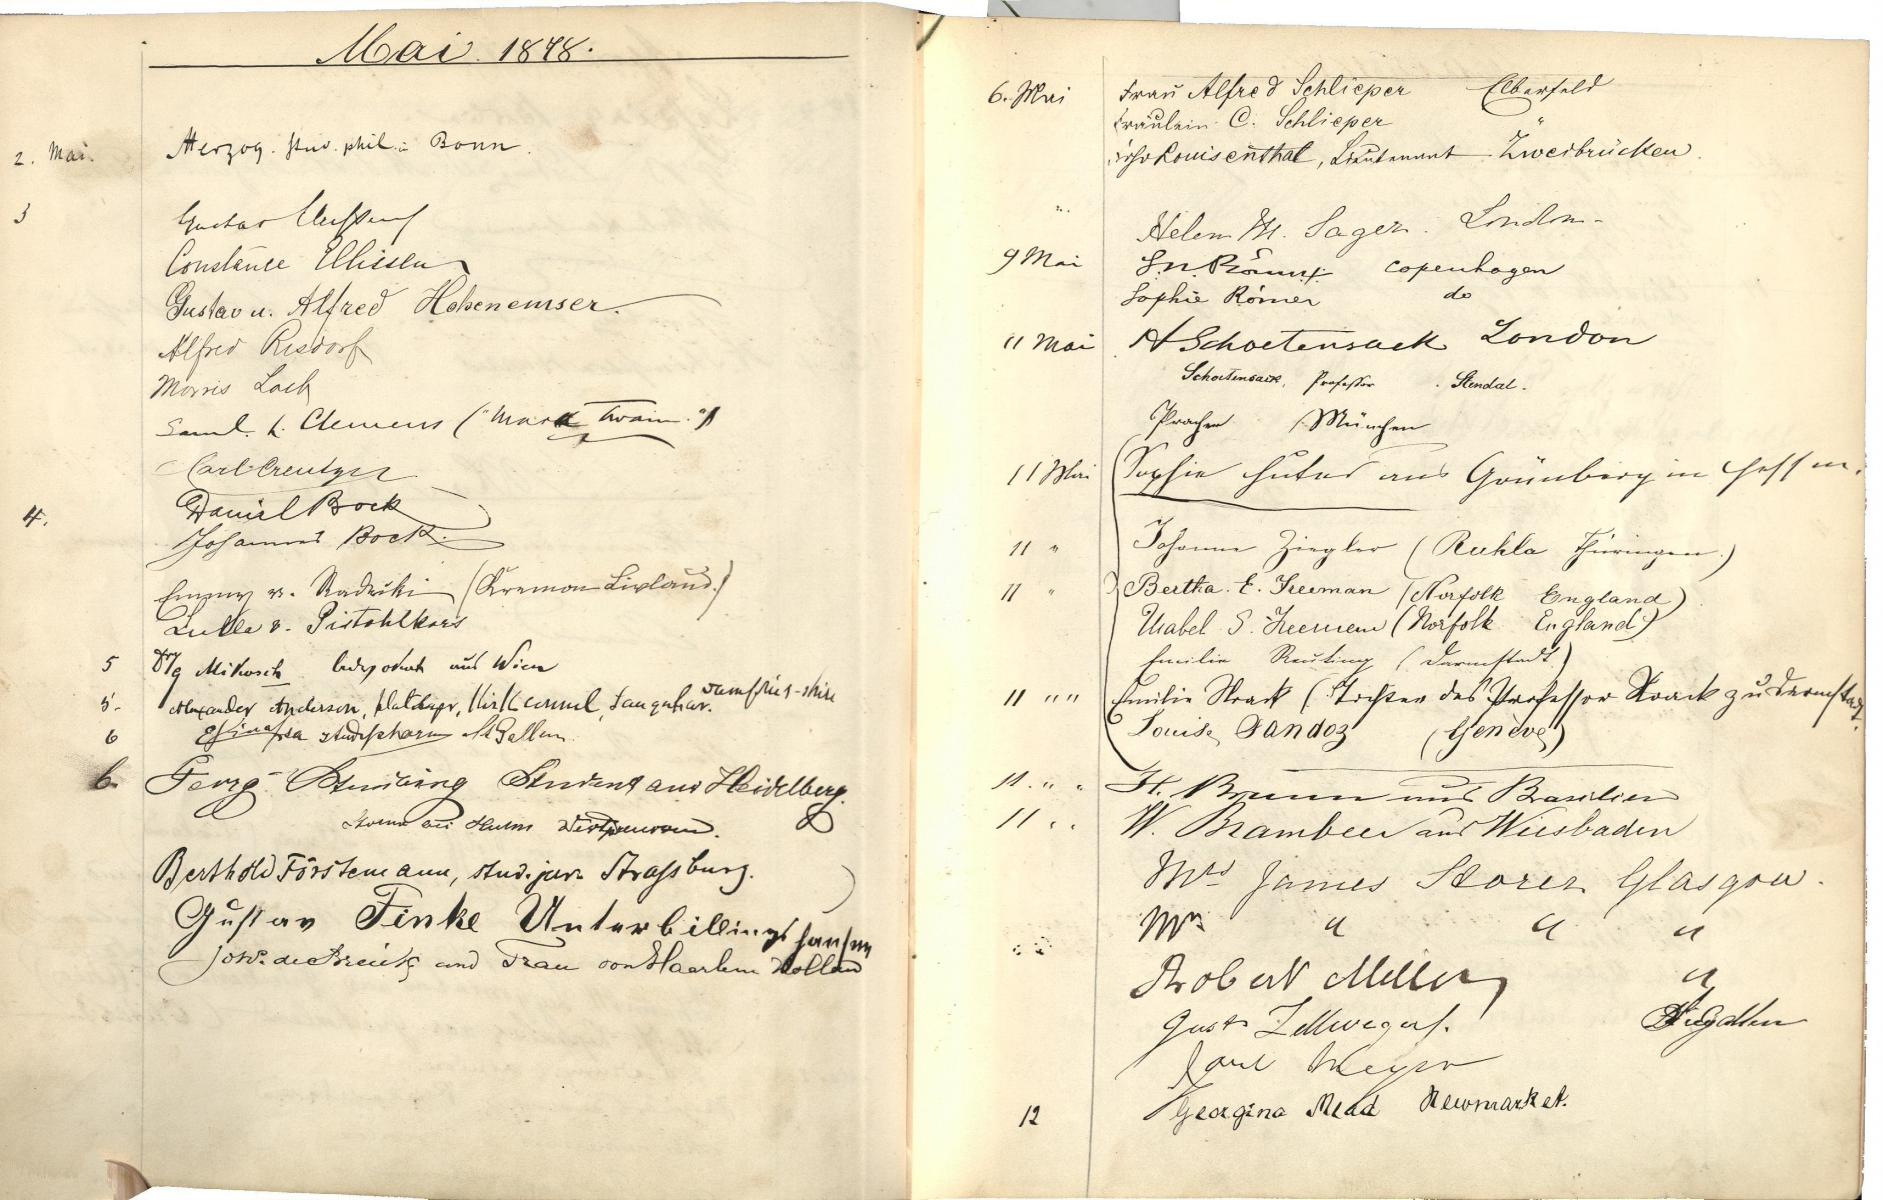 Mai 1878.
2. Mai. Herzog. stud. phil. Bonn.
3 Gustav
Constance Ellissen
Gustav u. Alfred Hohenemser.
Alfred Risdorf
Morris Lack
Saml. L. Clemens ("Mark Twain.")
Carl Creutzer
4. Daniel Bock
Johannes Bock.
Emmy v. (Kremon Livland.)
v. Pistohlkors
5 Mikosch aus Wien
5. Alexander Anderson, Kirkconnel, Dumfries-shire
6 St Gallen
6. Student aus Heidelberg.
Westpreussen.
Berthold Förstemann, stud. jur. Strassburg.
Gustav Finke Unterbillingshausen
und Frau von Haarlem Holland
6. Mai Frau Alfred Schlieper Elberfeld
Fräulein C. Schlieper
Louisenthal, Lieutenant Zweibrücken.
" Helen M. Sager. London
9 Mai Römer Copenhagen
Sophie Römer do
11 Mai A Schoetensack London
Schoetensack, Professor Stendal.
München
11 Mai Sophie aus Grünberg in Hessen.
11 " Johanna Ziegler (Ruhla Thüringen.)
11 " Bertha. E. Freeman (Norfolk England)
Isabel S. Freeman (Norfolk England)
Emilie Reuling (Darmstadt)
11 " " Emilie Noack (Tochter des Professor Noack zu Darmstadt.
Louise Sandoz (Genève)
11. " " H. Brunn aus Brasilien
11 " " W. Brambeer aus Wiesbaden
Mrs James Storer Glasgow.
Mr " " "
Robert Miller "
Gust. Zellweger. St Gallen
Paul Meyer
12 Georgina Mead Newmarket.